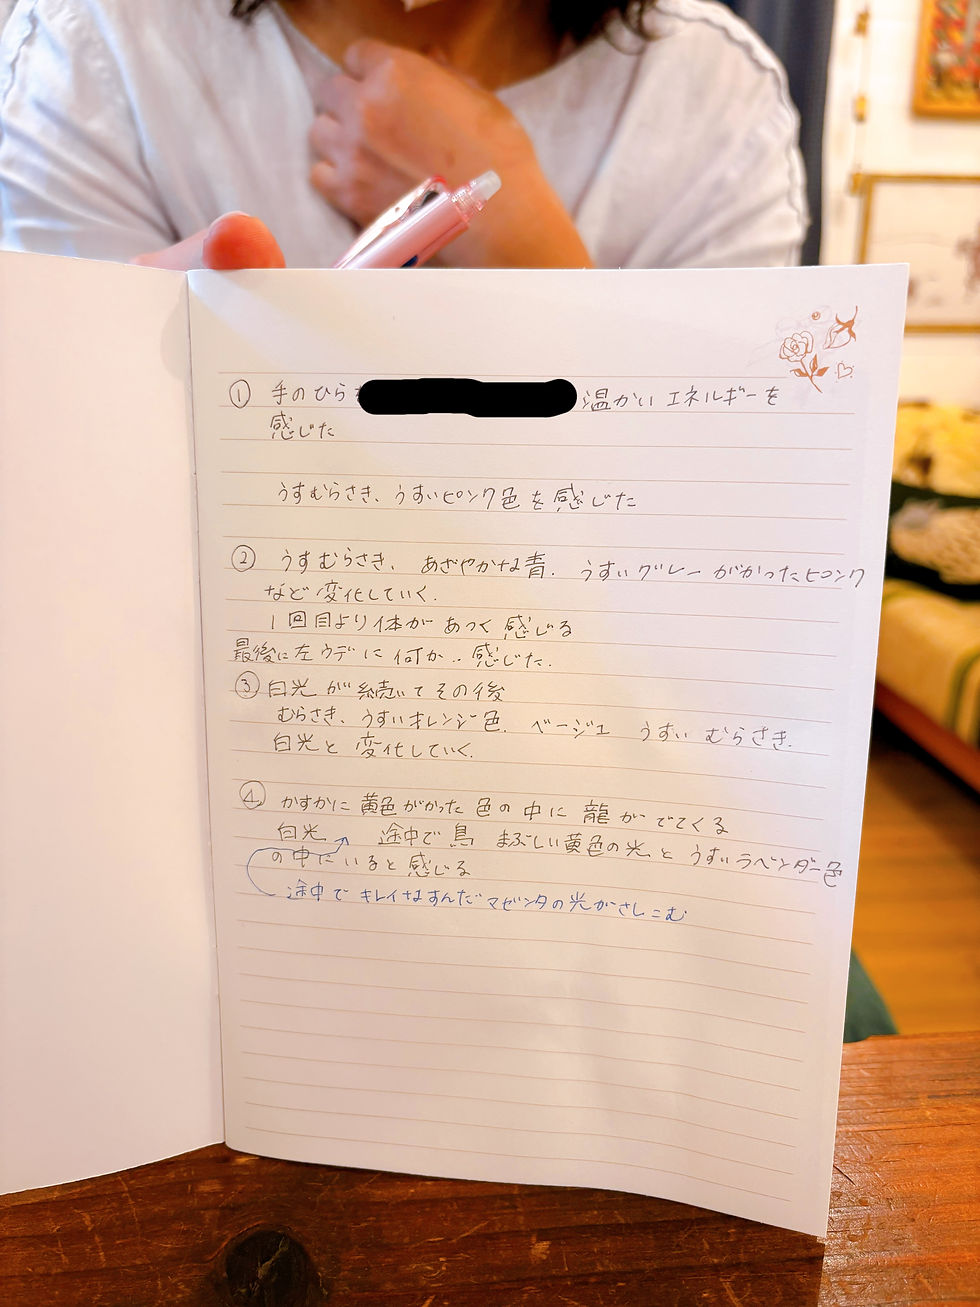 ① 手のひら 温かい エネルギーを
感じた
うすむらさき、うすいピンク色 を 感じた
② うすむらさき、 あざやかな青. うすいグレーがかったピンク
など 変化していく.
1回目より体が あつく 感じる
最後に左ウデに 何か.. 感じた.
③ 白光 が 続いて その後
むらさき、うすいオレンジ色. ベージュ うすい むらさき.
白光と 変化していく.
④ かすかに 黄色がかった 色の中に 龍が でてくる
白光 途中で 鳥 まぶしい黄色の光と うすいラベンダー色
の中に いると 感じる
途中で キレイなすんだ マゼンタの光がさしこむ